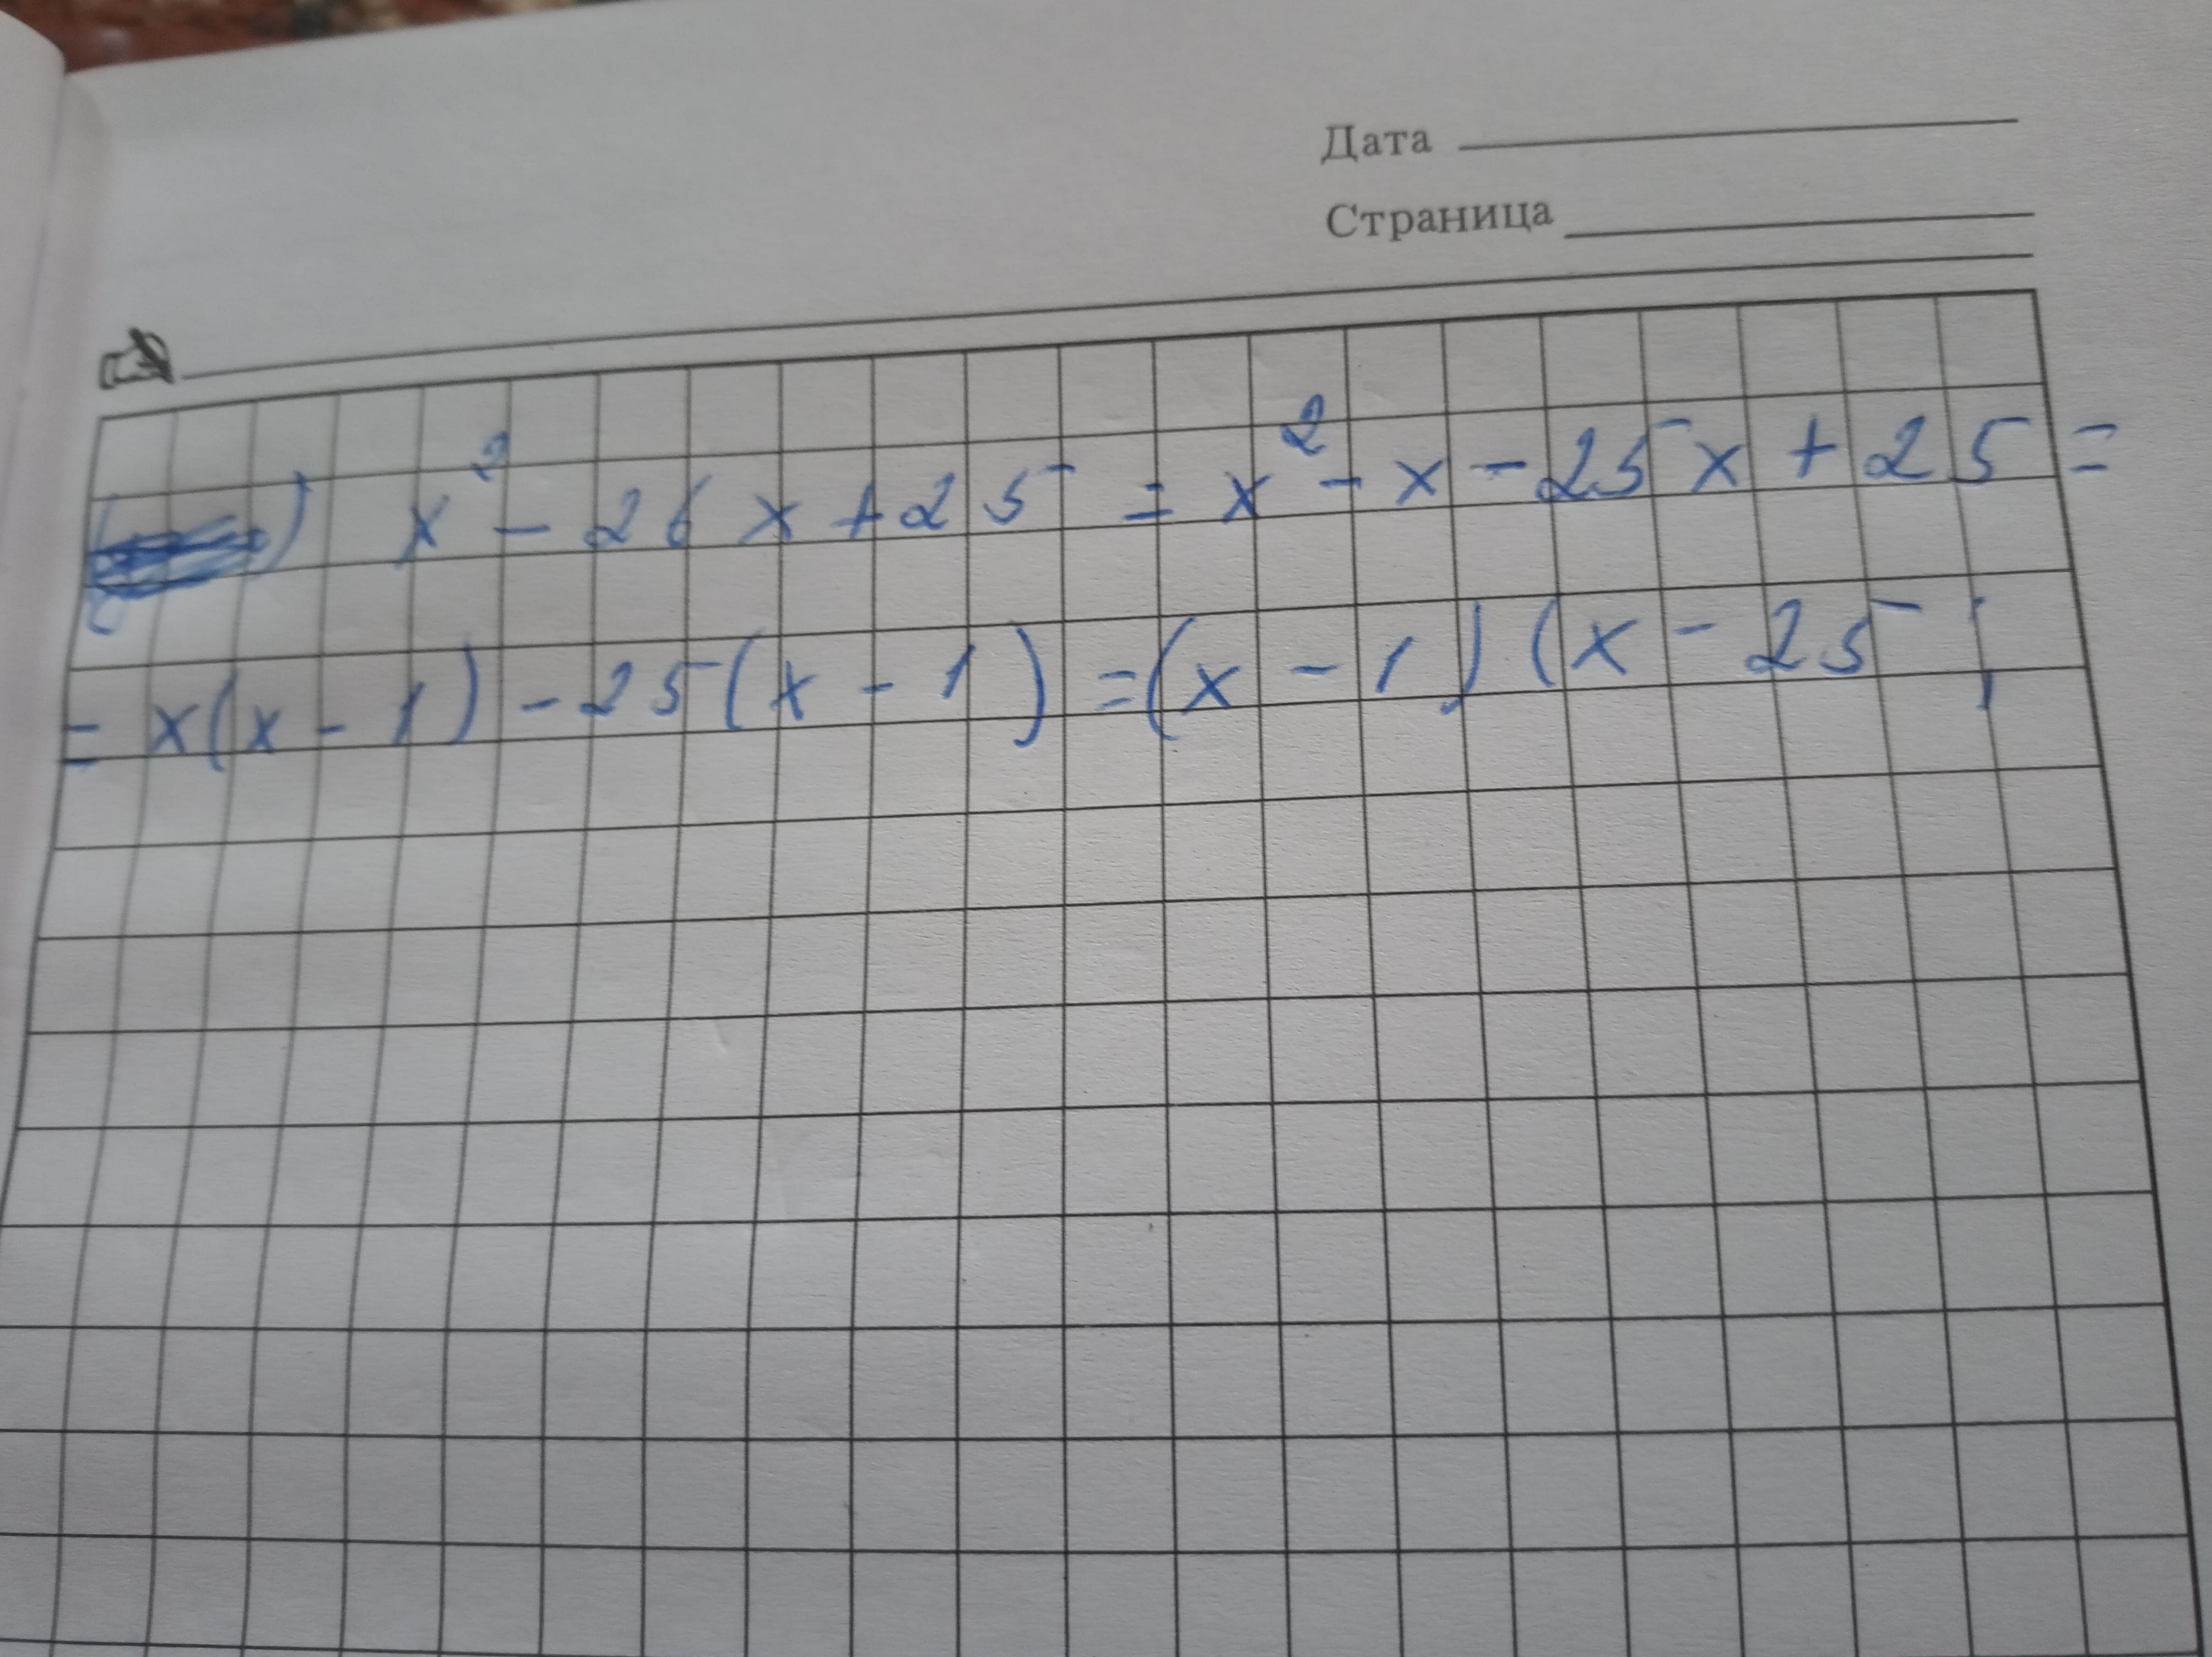 Дата
Страница
) x² - 26x + 25 = x² - x - 25x + 25 =
= x(x - 1) - 25(x - 1) = (x - 1)(x - 25 ;